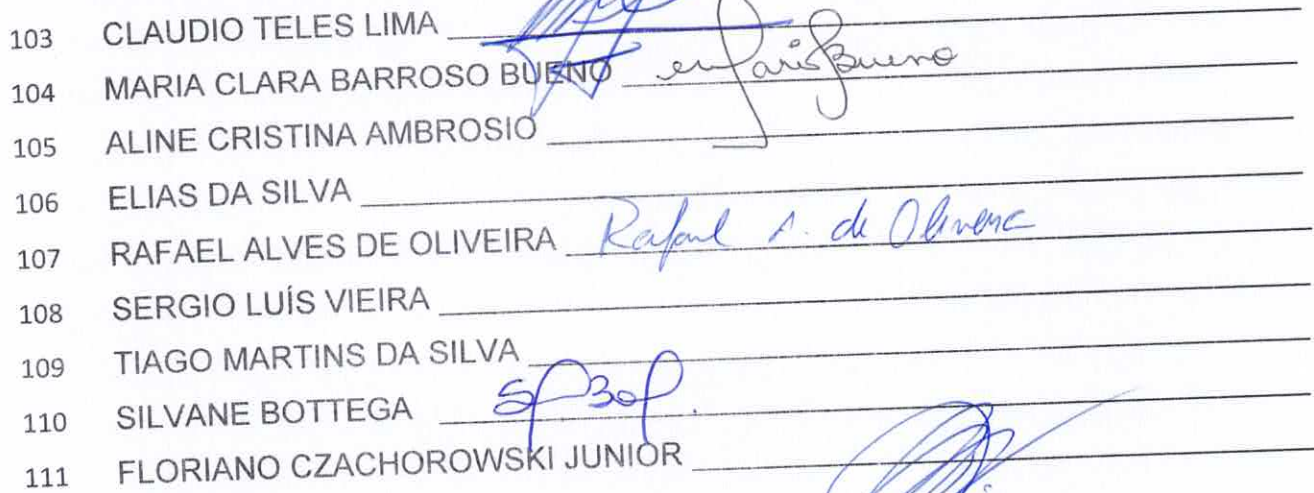 103 CLAUDIO TELES LIMA
104 MARIA CLARA BARROSO BUENO Bueno
105 ALINE CRISTINA AMBROSIO
106 ELIAS DA SILVA
107 RAFAEL ALVES DE OLIVEIRA Rafael A. de Oliveira
108 SERGIO LUÍS VIEIRA
109 TIAGO MARTINS DA SILVA
110 SILVANE BOTTEGA
111 FLORIANO CZACHOROWSKI JUNIOR